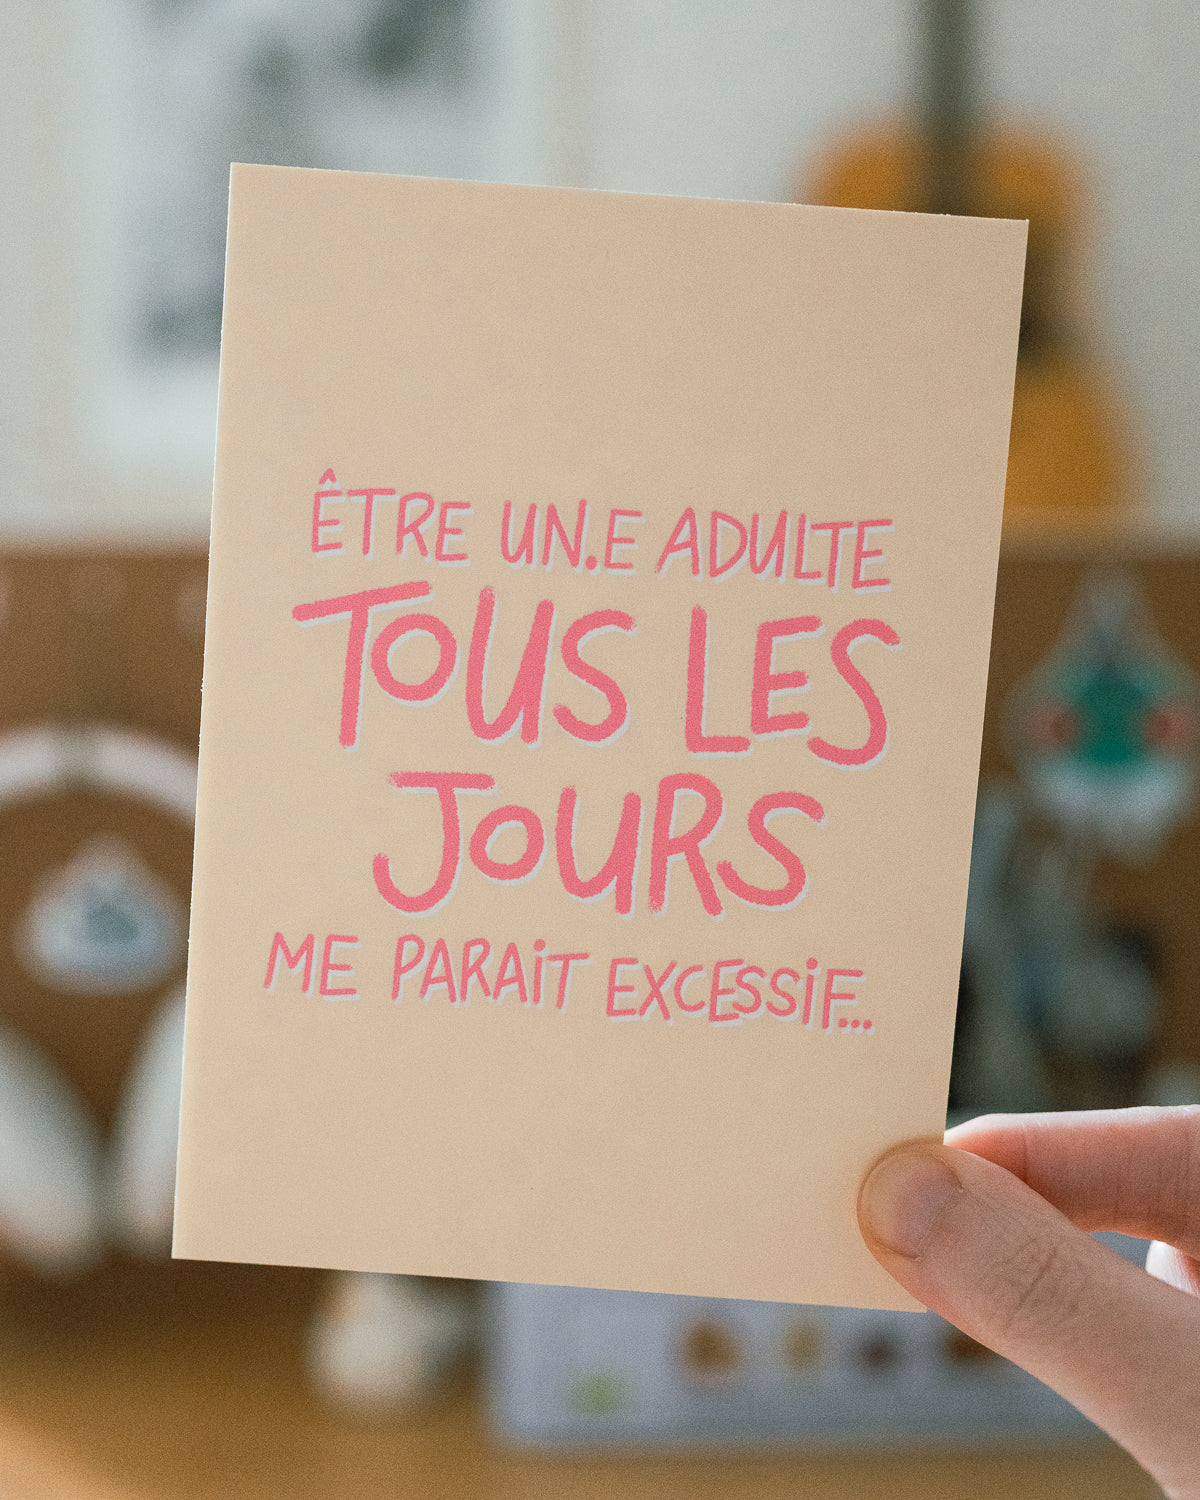 ÊTRE UN.E ADULTE
TOUS LES
JOURS
ME PARAiT EXCESSiF...